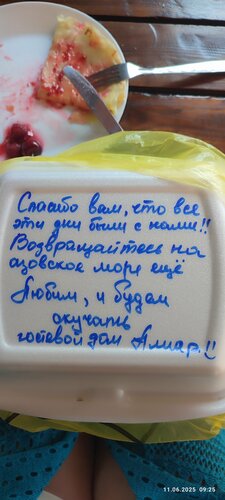 Спасибо вам, что все
эти дни были с нами!!
Возвращайтесь на
азовское море ещё
Любим, и будем
скучать
гостевой дом Алиар!!
11.06.2025 09:25